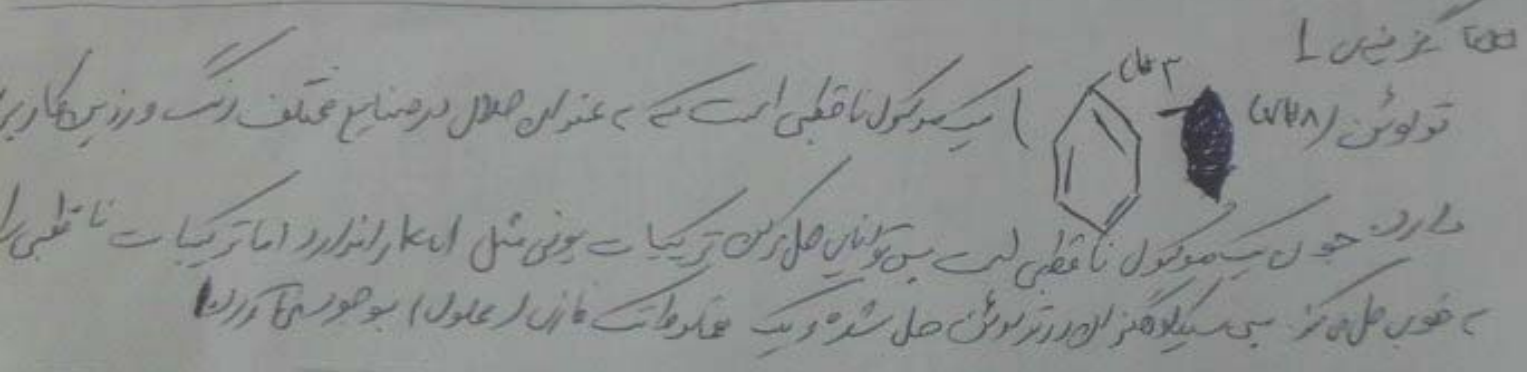 گزینه 1
تولوئن (C7H8) CH3 یک مولکول ناقطبی است که به عنوان حلال در صنایع مختلف رنگ و رزین کاربرد
دارد چون یک مولکول ناقطبی است پس توانایی حل کردن ترکیبات یونی مثل KI را ندارد اما ترکیبات ناقطبی را
به خوبی حل می کند پس سیکلوهگزان در تولوئن حل شده و یک مخلوط تک فازی (محلول) بوجود می آورد